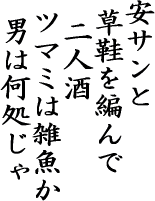 安サンと
草鞋を編んで
二人酒
ツマミは雑魚か
男は何処じゃ